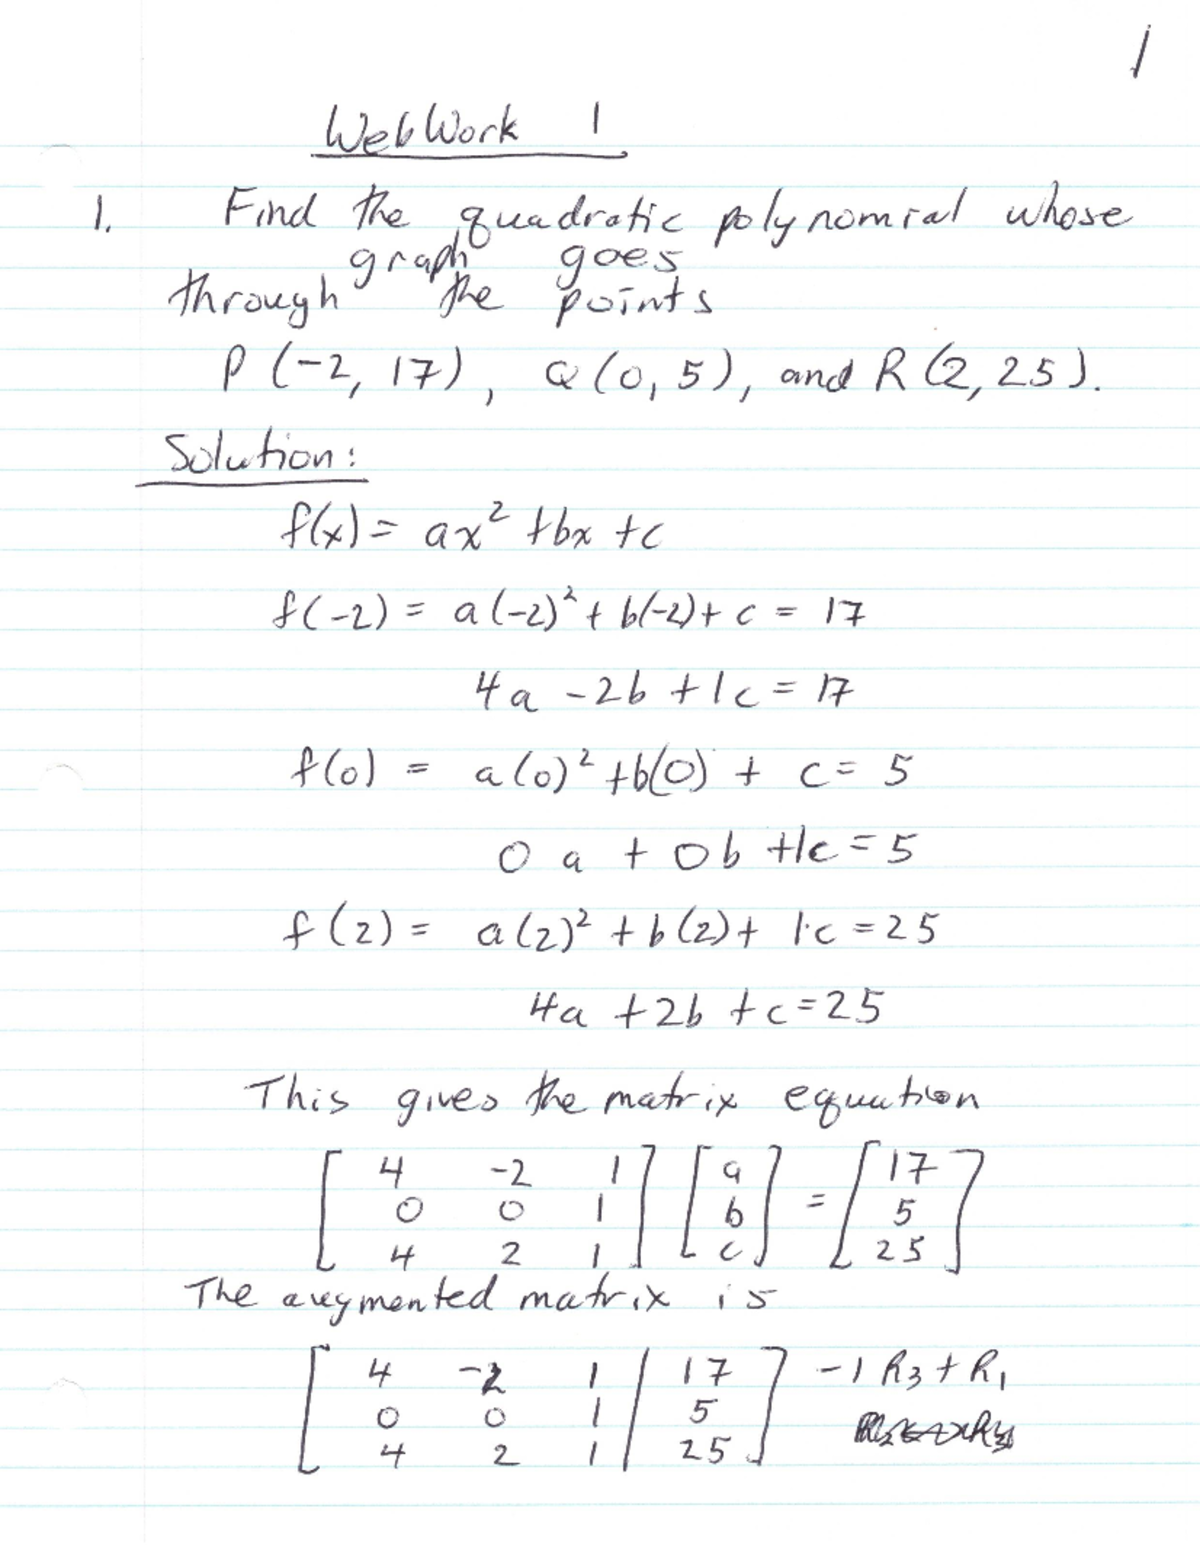 1
WebWork 1
1. Find the quadratic polynomial whose
graph goes
through the points
P(-2, 17), Q(0, 5), and R(2, 25).
Solution:
f(x) = ax² + bx + c
f(-2) = a(-2)² + b(-2) + c = 17
4a - 2b + 1c = 17
f(0) = a(0)² + b(0) + c = 5
0a + 0b + 1c = 5
f(2) = a(2)² + b(2) + 1·c = 25
4a + 2b + c = 25
This gives the matrix equation
[ 4 -2 1 ] [ a ] = [ 17 ]
[ 0 0 1 ] [ b ] = [ 5 ]
[ 4 2 1 ] [ c ] = [ 25 ]
The augmented matrix is
[ 4 -2 1 | 17 ] -1R₃ + R₁
[ 0 0 1 | 5 ]
[ 4 2 1 | 25 ]